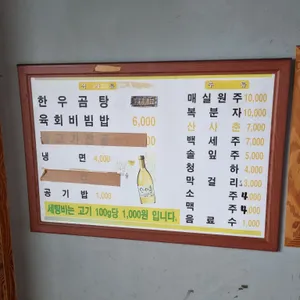 한우곰탕
육회비빔밥 6,000
냉면 4,000
공기밥 1,000
세팅비는 고기 100g당 1,000원 입니다.
매실원주 10,000
복분자 10,000
산사춘 7,000
백세주 7,000
솔잎주 5,000
청하
막걸리 3,000
소주 4,000
맥주 4,000
음료수 1,000